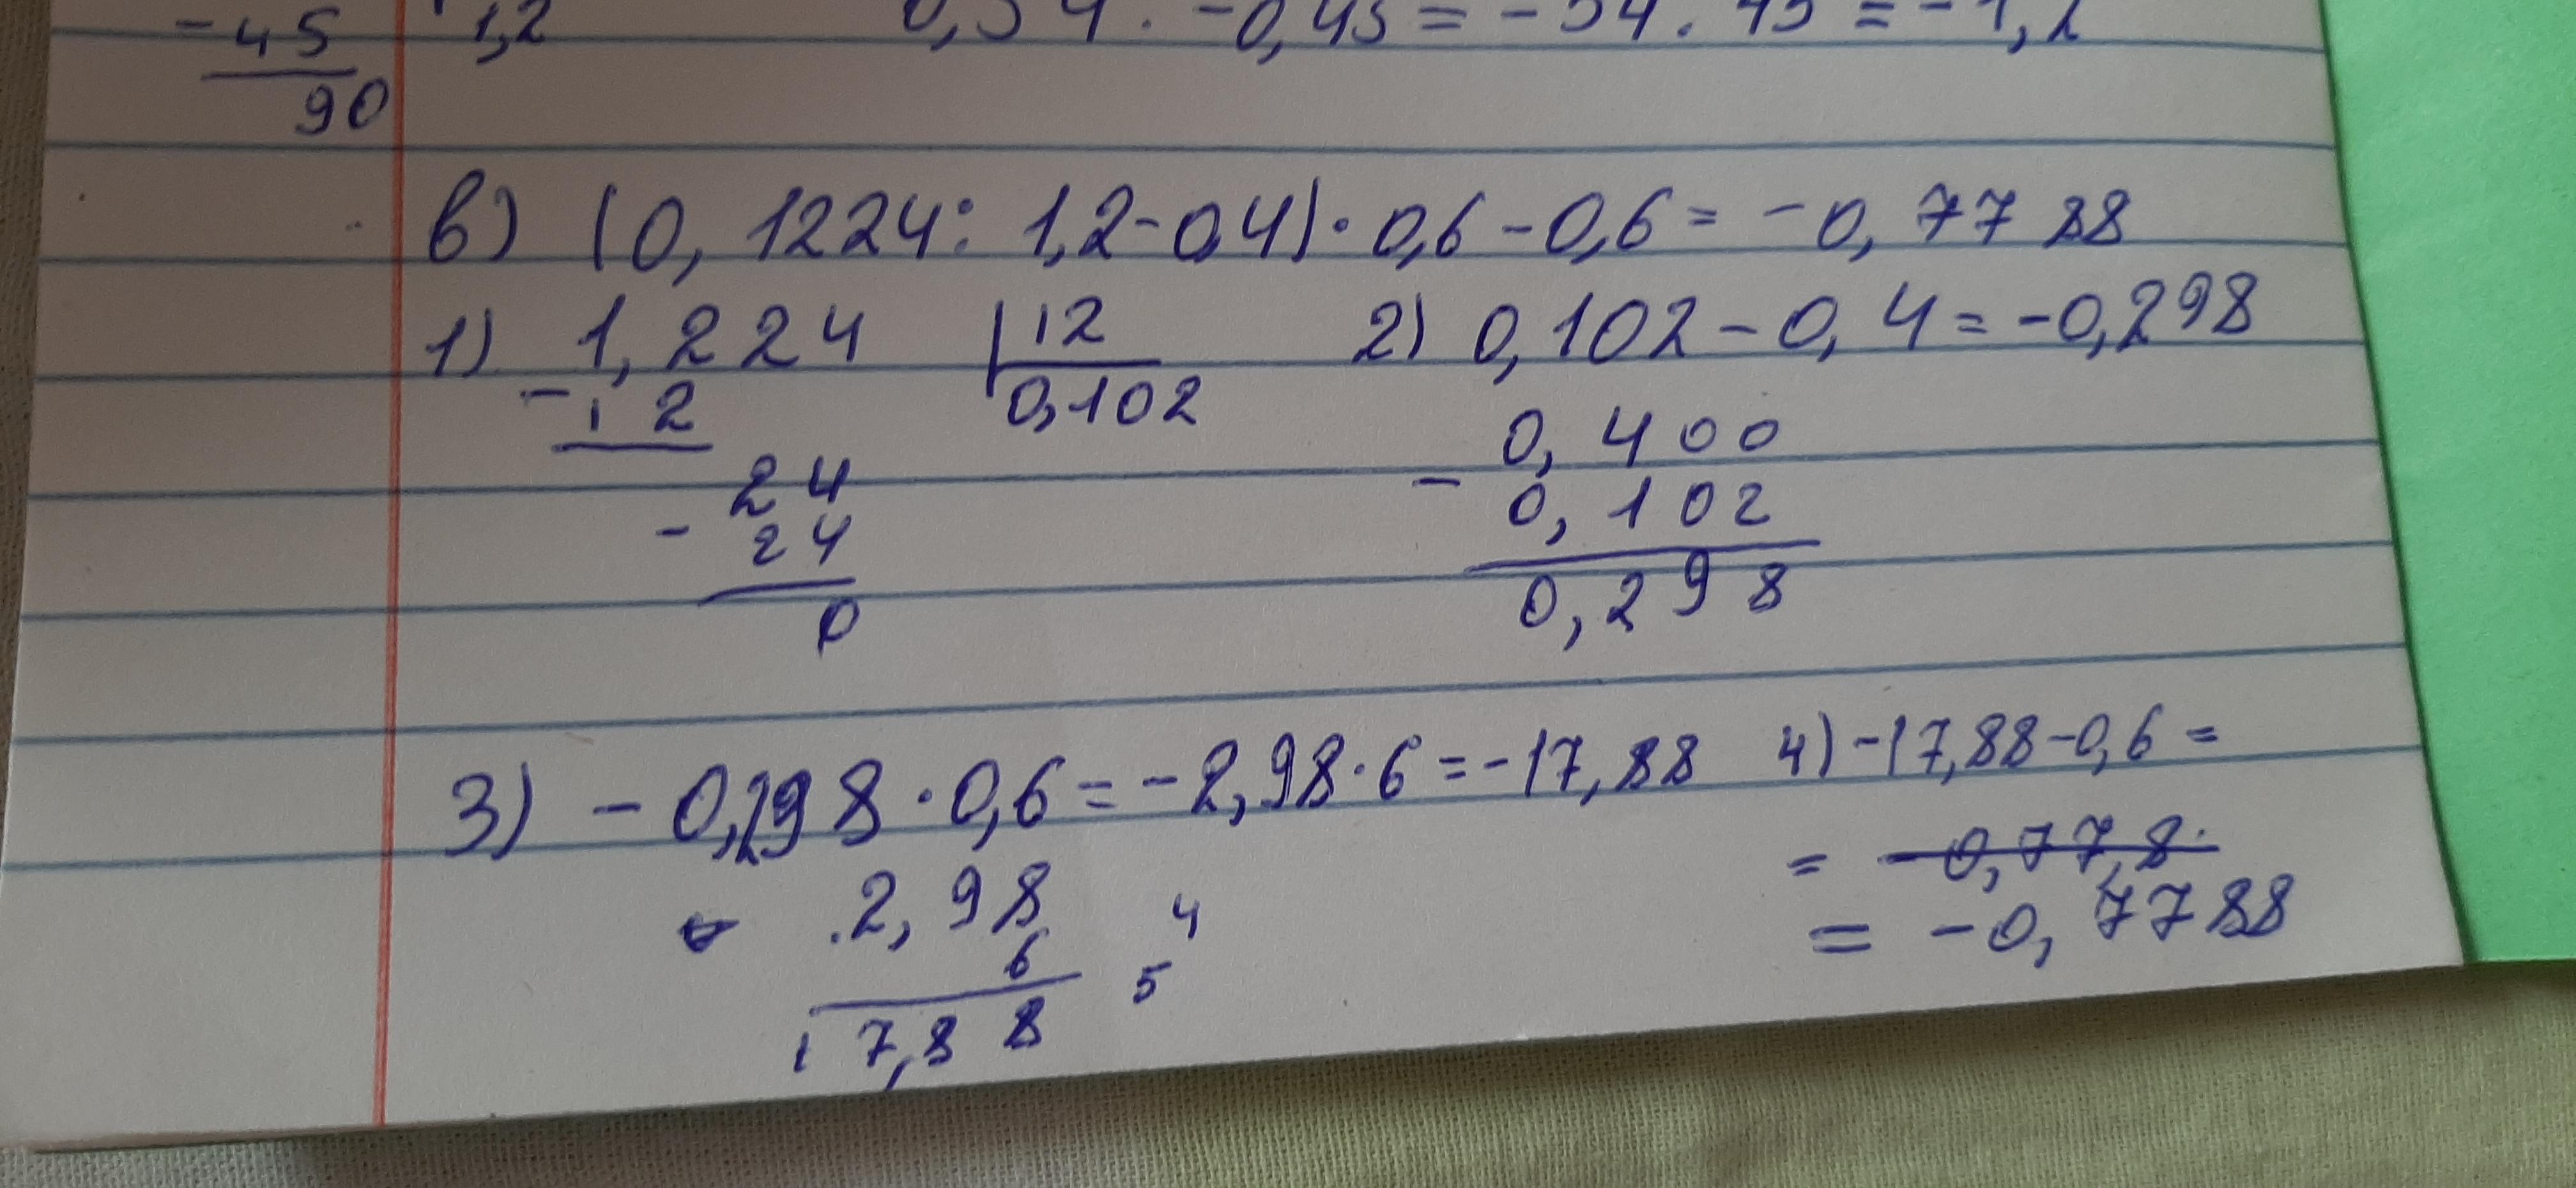 - 45 1,2 0,54 · -0,45 = -54 . 45 = -1,2
90
в) (0,1224 : 1,2 - 0,4) · 0,6 - 0,6 = -0,7788
1) 1,224 12 2) 0,102 - 0,4 = -0,298
- 12 0,102
0,400
24 - 0,102
- 24 0,298
0
3) - 0,298 · 0,6 = -2,98 · 6 = -17,88 4) -17,88 - 0,6 =
= -0,77,8
2,98 4 = -0,7788
6 5
17,88